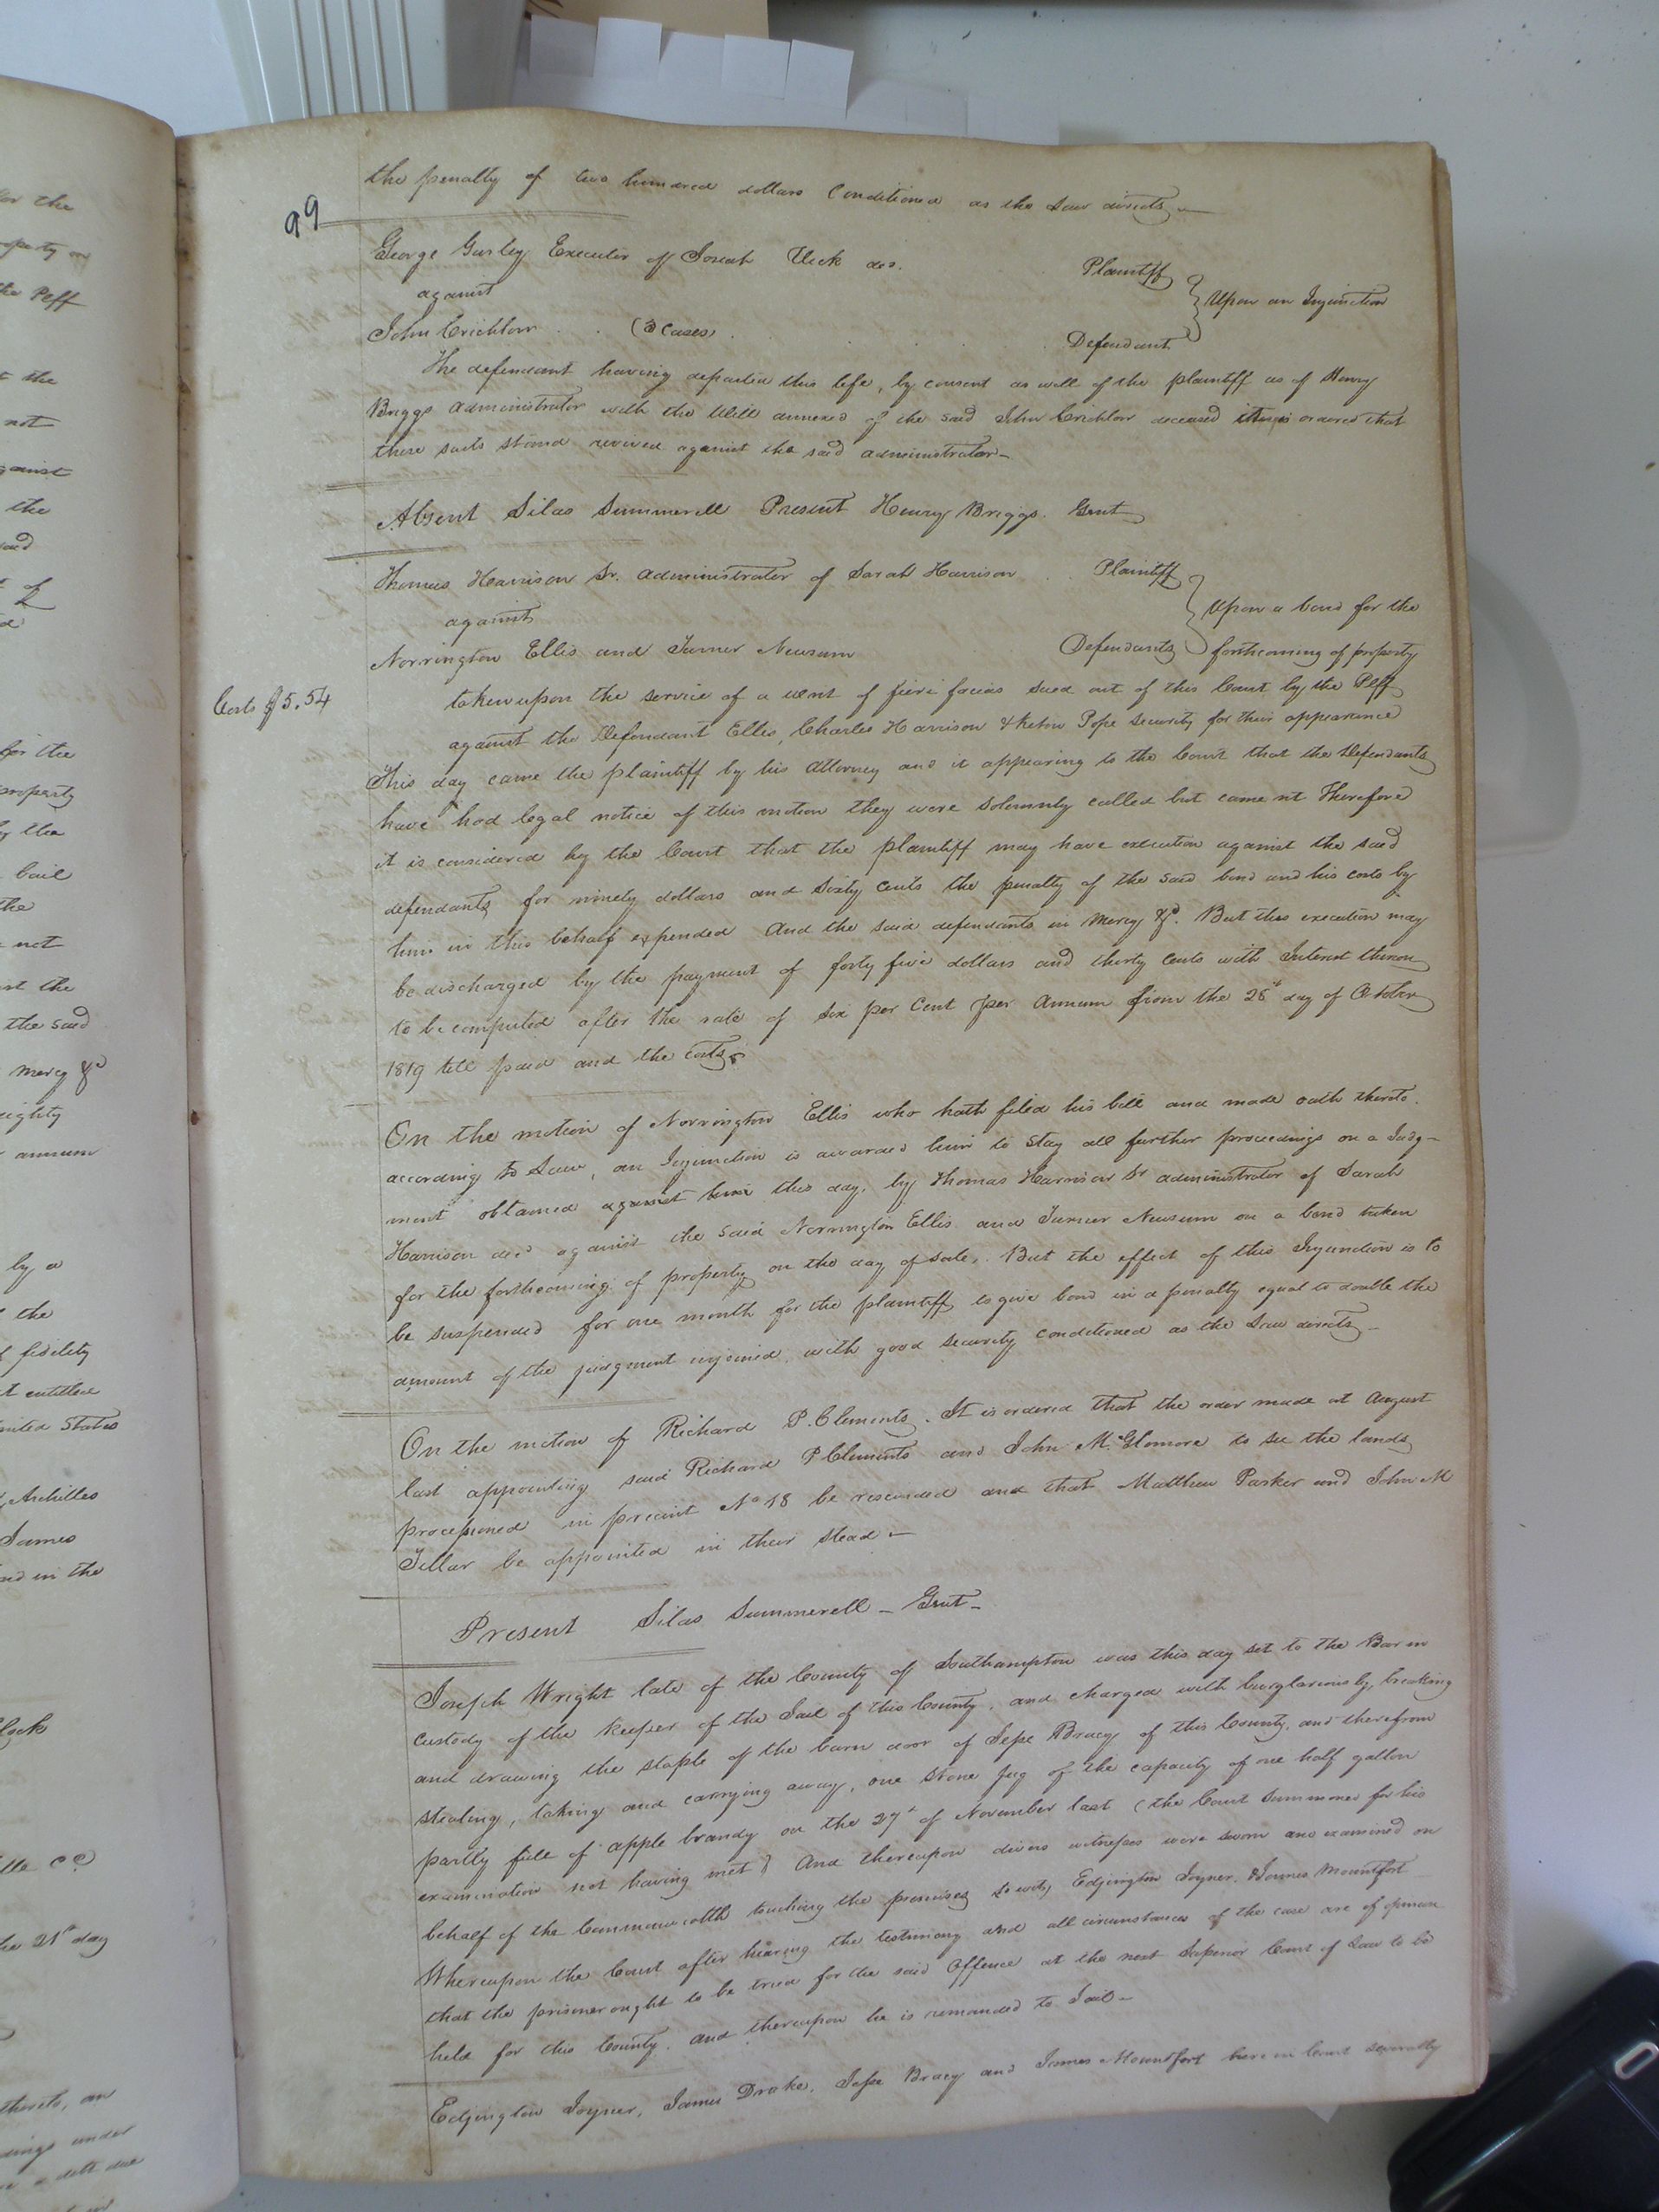 99
the penalty of two hundred dollars Conditioned as the Law directs
George Gurley Executor of Josiah Vick decd. Plaintiff
against
Upon an Injunction
John Crichlow (3 Cases) Defendant
The defendant having departed this life, by consent as well of the plaintiff as of Henry
Briggs administrator with the Will annexed of the said John Crichlow deceased it is ordered that
these suits stand revived against the said administrator
Absent Silas Summerell Present Henry Briggs. Gent
Thomas Harrison Sr. administrator of Sarah Harrison Plaintiff
against
Upon a bond for the
Norrington Ellis and Turner Newsum Defendants
forthcoming of property
Costs $5.54
taken upon the service of a writ of fieri facias sued out of this Court by the Plff
against the Defendant Ellis, Charles Harrison & Pope security for their appearance
This day came the plaintiff by his Attorney and it appearing to the Court that the Defendants
have had legal notice of this motion they were Solemnly called but came nt Therefore
it is considered by the Court that the plaintiff may have execution against the said
defendants for ninety dollars and Sixty Cents the penalty of the said bond and his costs by
him in this behalf expended And the said defendants in Mercy &c. But this execution may
be discharged by the payment of forty five dollars and thirty Cents with Interest thereon
to be computed after the rate of six per Cent per Annum from the day of October
1819 till paid and the Costs
On the motion of Norrington Ellis who hath filed his bill and made oath thereto.
according to Law, an Injunction is awarded him to stay all further proceedings on a Judg-
ment obtained against him this day, by Thomas Harrison Sr administrator of Sarah
Harrison decd against the said Norrington Ellis and Turner Newsum on a bond taken
for the forthcoming of property on the day of sale,. But the effect of this Injunction is to
be suspended for one month for the plaintiff to give bond in a penalty equal to double the
amount of the judgment injoined, with good security conditioned as the Law directs
On the motion of Richard P. Clements. It is ordered that the order made at August
last appointing said Richard P Clements and John to see the lands
processioned in precint No 18 be rescinded and that Matthew Parker and John M
Tillar be appointed in their stead
Present Silas Summerell Gent
Joseph Wright late of the County of Southampton was this day set to the Bar in
custody of the keeper of the Jail of this County, and charged with burglariously, breaking
and drawing the staple of the barn door of Jesse Bracy of this County, and therefrom
stealing, taking and carrying away, one stone Jug of the capacity of one half gallon
partly full of apple brandy on the of November last (the Court Summoned for his
examination not having met) And thereupon divers witnesses were sworn and examined on
behalf of the Commonwealth touching the premises to wit, Edgington Joyner, & James Mountfort
Whereupon the Court after hearing the testimony and all circumstances of the case are of opinion
that the prisoner ought to be tried for the said Offence at the next Superior Court of Law to be
held for this County, and thereupon he is remanded to Jail
Edgington Joyner, James Drake, Jesse Bracy and James Mountfort here in Court severally